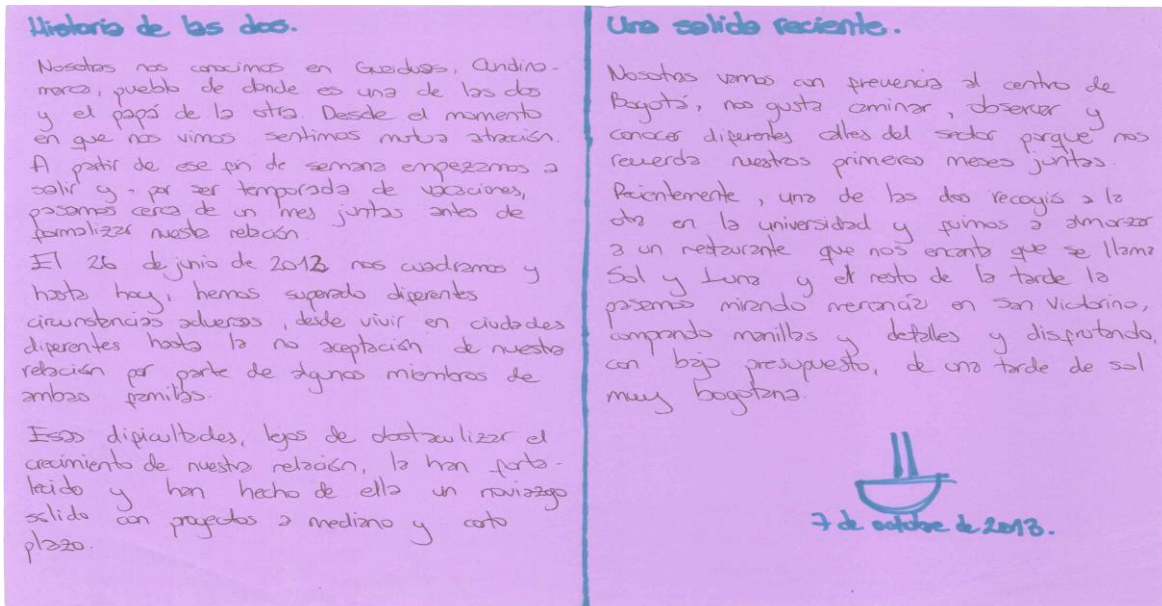 Historia de las dos.
Nosotras nos conocimos en Guaduas, Cundina-
marca, pueblo de donde es una de las dos
y el papá de la otra. Desde el momento
en que nos vimos sentimos mutua atracción.
A partir de ese fin de semana empezamos a
salir y, por ser temporada de vacaciones,
pasamos cerca de un mes juntas antes de
formalizar nuestra relación.
El 26 de junio de 2012 nos cuadramos y
hasta hoy, hemos superado diferentes
circunstancias adversas, desde vivir en ciudades
diferentes hasta la no aceptación de nuestra
relación por parte de algunos miembros de
ambas familias.
Esas dificultades, lejos de obstaculizar el
crecimiento de nuestra relación, la han forta-
lecido y han hecho de ella un noviazgo
sólido con proyectos a mediano y corto
plazo.
Una salida reciente.
Nosotras vamos con frecuencia al centro de
Bogotá, nos gusta caminar, observar y
conocer diferentes calles del sector porque nos
recuerda nuestros primeros meses juntas.
Recientemente, una de las dos recogió a la
otra en la universidad y fuimos a almorzar
a un restaurante que nos encanta que se llama
Sol y Luna y el resto de la tarde la
pasamos mirando mercancía en San Victorino,
comprando manillas y detalles y disfrutando,
con bajo presupuesto, de una tarde de sol
muy bogotana.
7 de octubre de 2013.